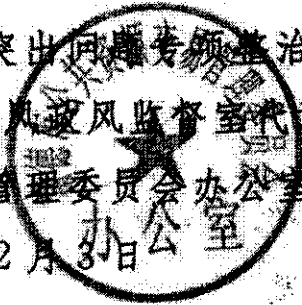 突出问题专项整治
风政风监督室代
管理委员会办公室
2月3日
办公室